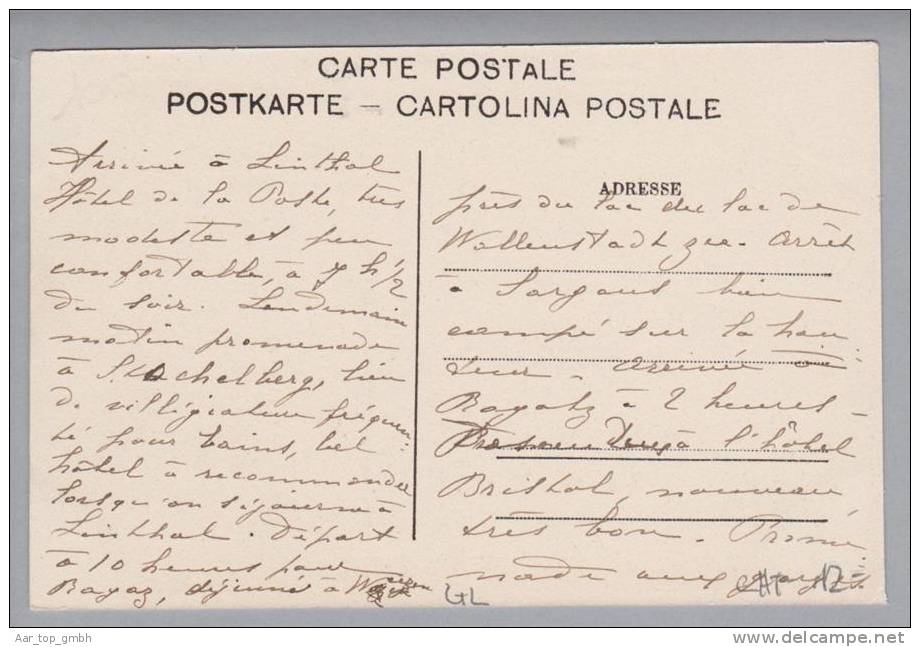 CARTE POSTALE
POSTKARTE — CARTOLINA POSTALE
Arrivée à Linthal
Hôtel de la Poste, très
modeste et peu
confortable, à 7 h 1/2
du soir. Lendemain
matin promenade
à Stachelberg, lieu
de villégiature fréquen-
té pour bains, bel
hôtel à recommander
lorsqu'on séjourne à
Linthal. Départ
à 10 heures pour
Ragaz, déjeuné à
ADRESSE
près du lac du lac de
Wallenstadt zee. Arrêt
à Sargans bien
campé sur la hau
teur. Arrivée à
Ragatz à 2 heures -
l'hôtel
Bristol, nouveau
très bon. Prome
nade aux gorges
GL
12=
Aar_top_gmbh
www.delcampe.net